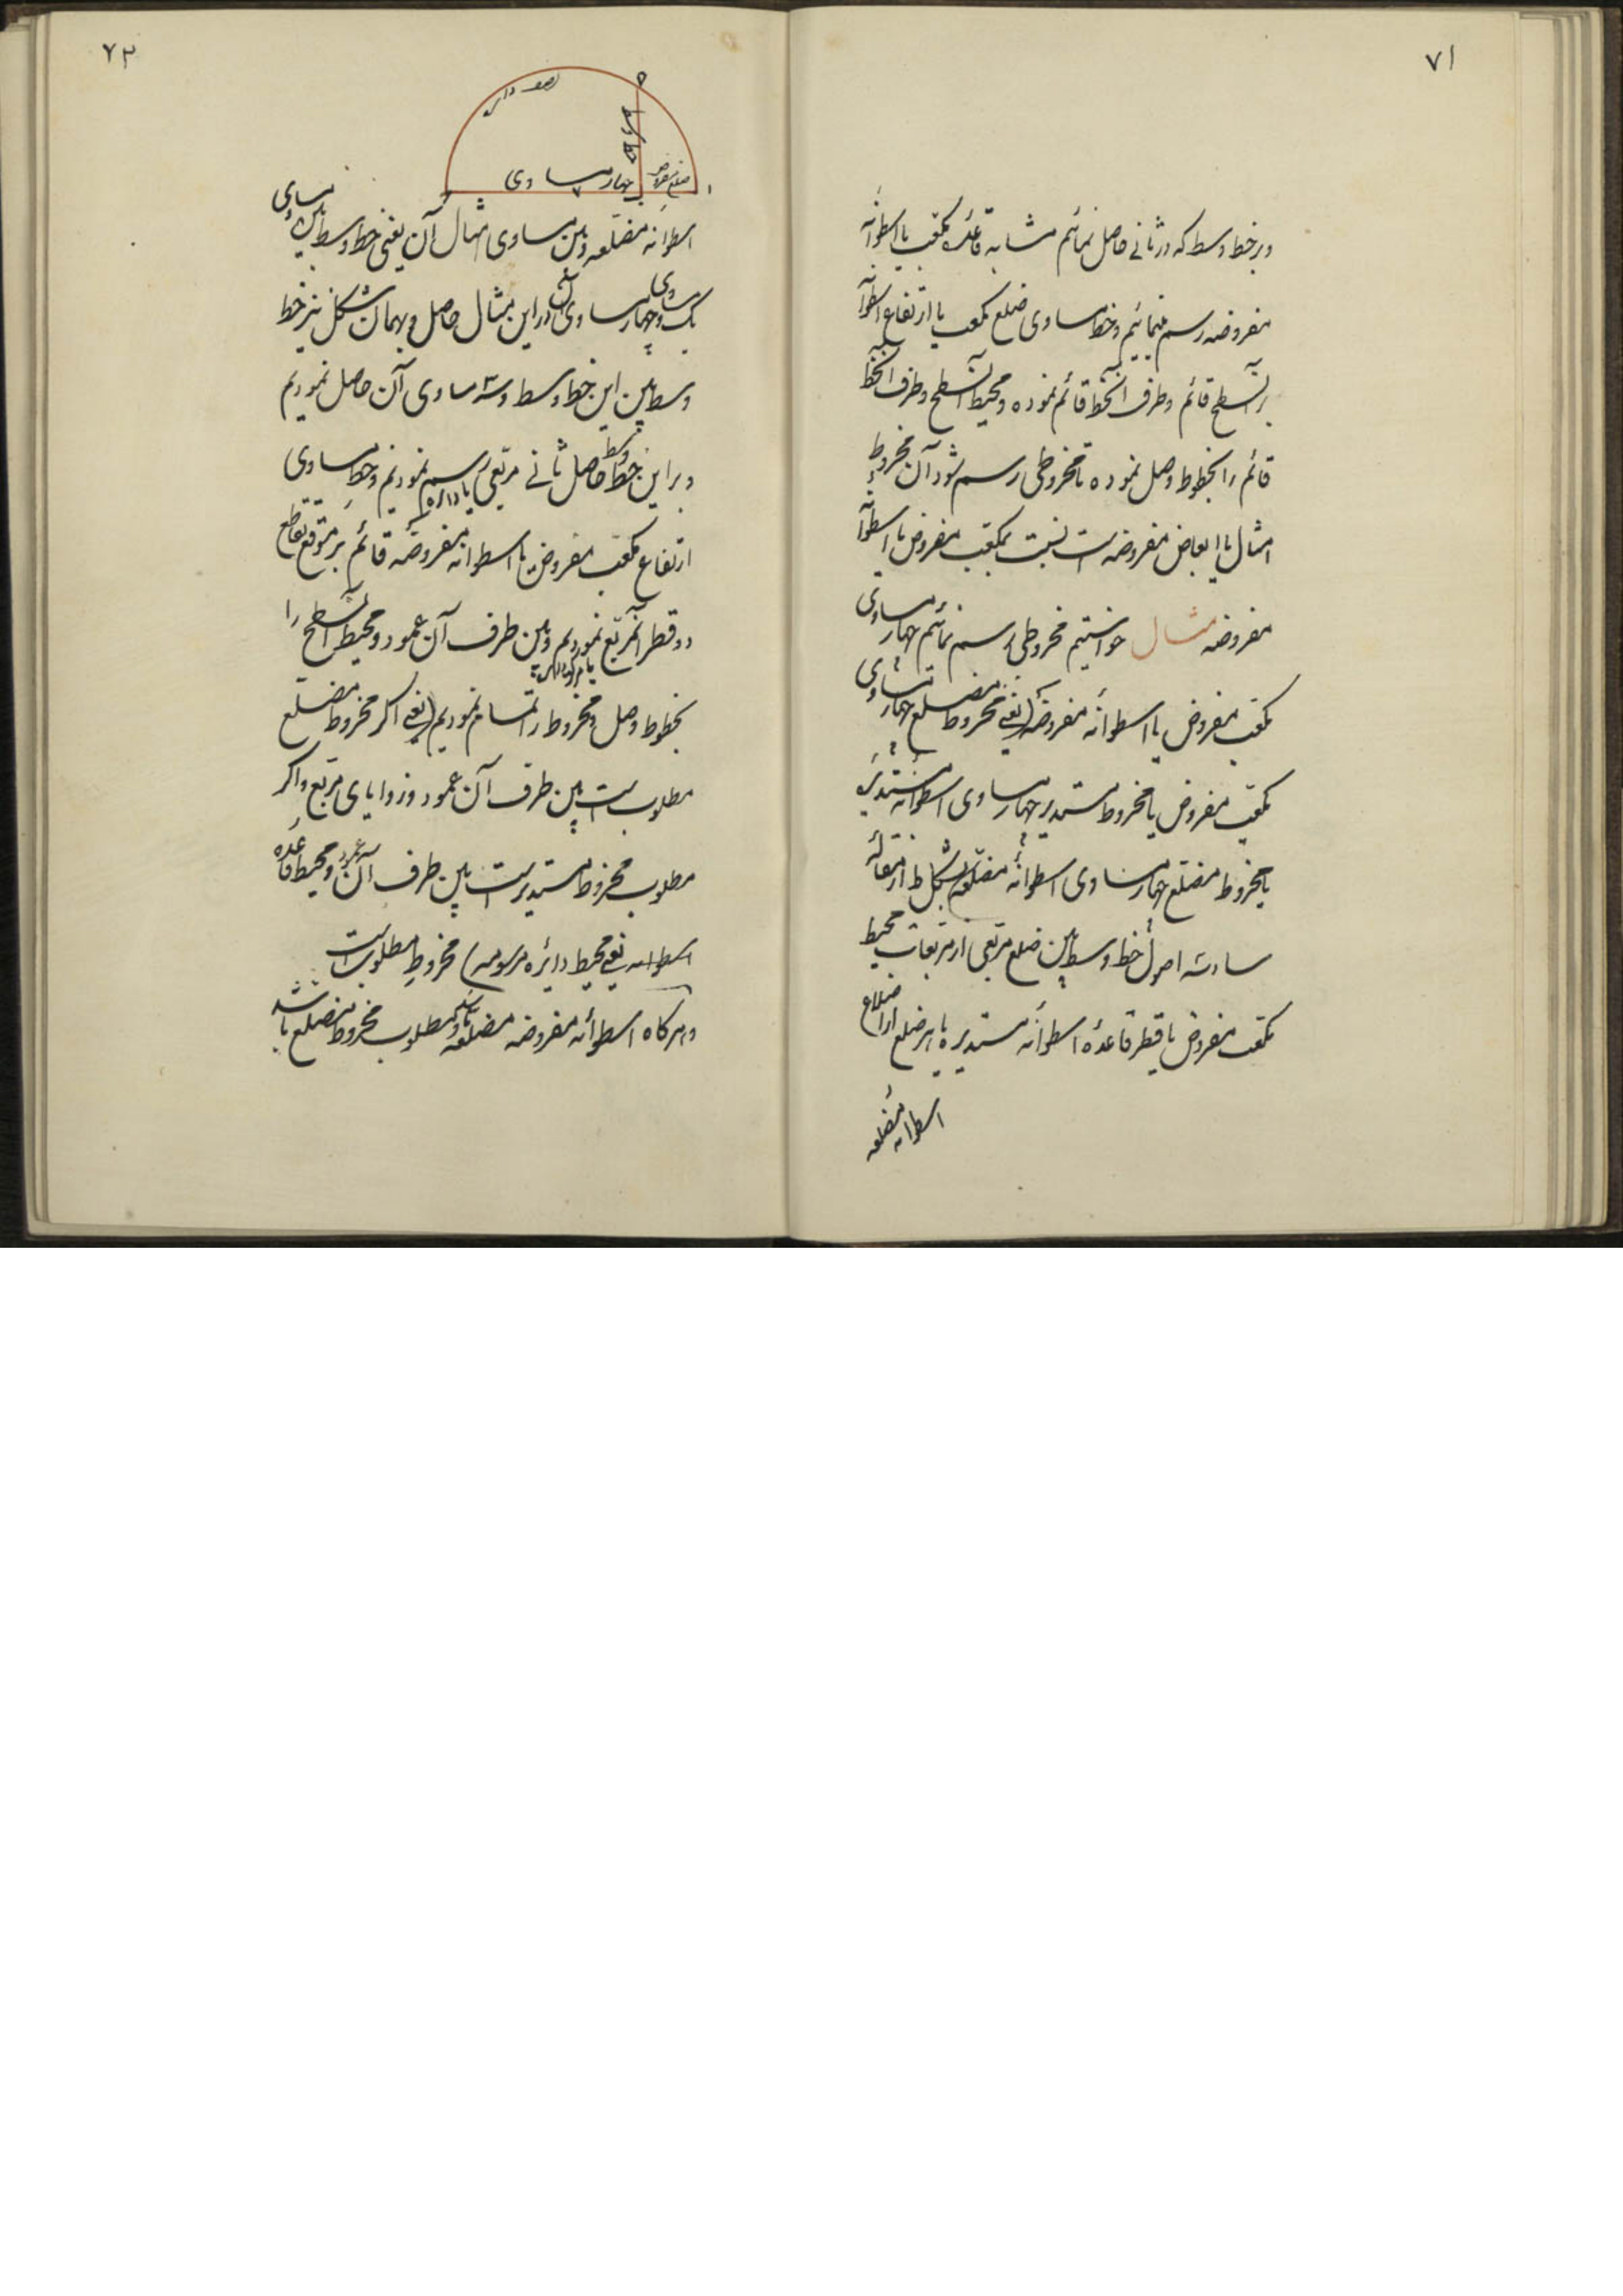 ۷۱
و بر خط وسط که در ثانی حاصل نمائیم مشابه قاعدهٔ مکعب یا اسطوانه
مفروضه رسم نمائیم و خط مساوی ضلع مکعب یا ارتفاع اسطوانه
بر آن سطح قائم و طرف آنخط قائم نموده و محیط آن سطح و طرف آنخط
قائم را بخطوط وصل نموده تا مخروطی رسم شود آن مخروط
امثال یا ابعاض مفروضه است نسبت بمکعب مفروض یا اسطوانه
مفروضه مثال خواستیم مخروطی رسم نمائیم چهار مساوی
مکعب مفروض یا اسطوانه مفروضه (یعنی مخروط مضلع چهار مساوی
مکعب مفروض یا مخروط مستدیر چهار مساوی اسطوانه مستدیره
یا مخروط مضلع چهار مساوی اسطوانهٔ مضلعه بشکل ط از مقاله
سادسه اصول خط وسط بین ضلع مربعی از مربعات محیط
مکعب مفروض یا قطر قاعدهٔ اسطوانه مستدیره یا هر ضلع از اضلاع
اسطوانه مضلعه
۷۲
نصف دایره
ضلع مفروض
چهار مساوی
اسطوانه مضلعه و بین مساوی امثال آن یعنی خط وسط بین مساوی
یک و چهار مساوی آن در این مثال حاصل و بهمان شکل نیز خط
وسط بین این خط وسط و سه مساوی آن حاصل نمودیم
و بر این خط وسط حاصل ثانی مربعی یا دایره رسم نمودیم و خط مساوی
ارتفاع مکعب مفروض یا اسطوانه مفروضه قائم بر موقع تقاطع
دو قطر آنمربع نمودیم و بین طرف آن عمود و محیط آن سطح را
یا مرکز دایره
بخطوط وصل و مخروط را تمام نمودیم (یعنی اگر مخروط مضلع
مطلوب است بین طرف آن عمود و زوایای مربع و اگر
مطلوب مخروط مستدیر است بین طرف آن عمود و محیط قاعده
اسطوانه یعنی محیط دائره مرسومه) مخروط مطلوب است
و هرگاه اسطوانه مفروضه مضلعه باشد و مطلوب مخروط مضلع باشد